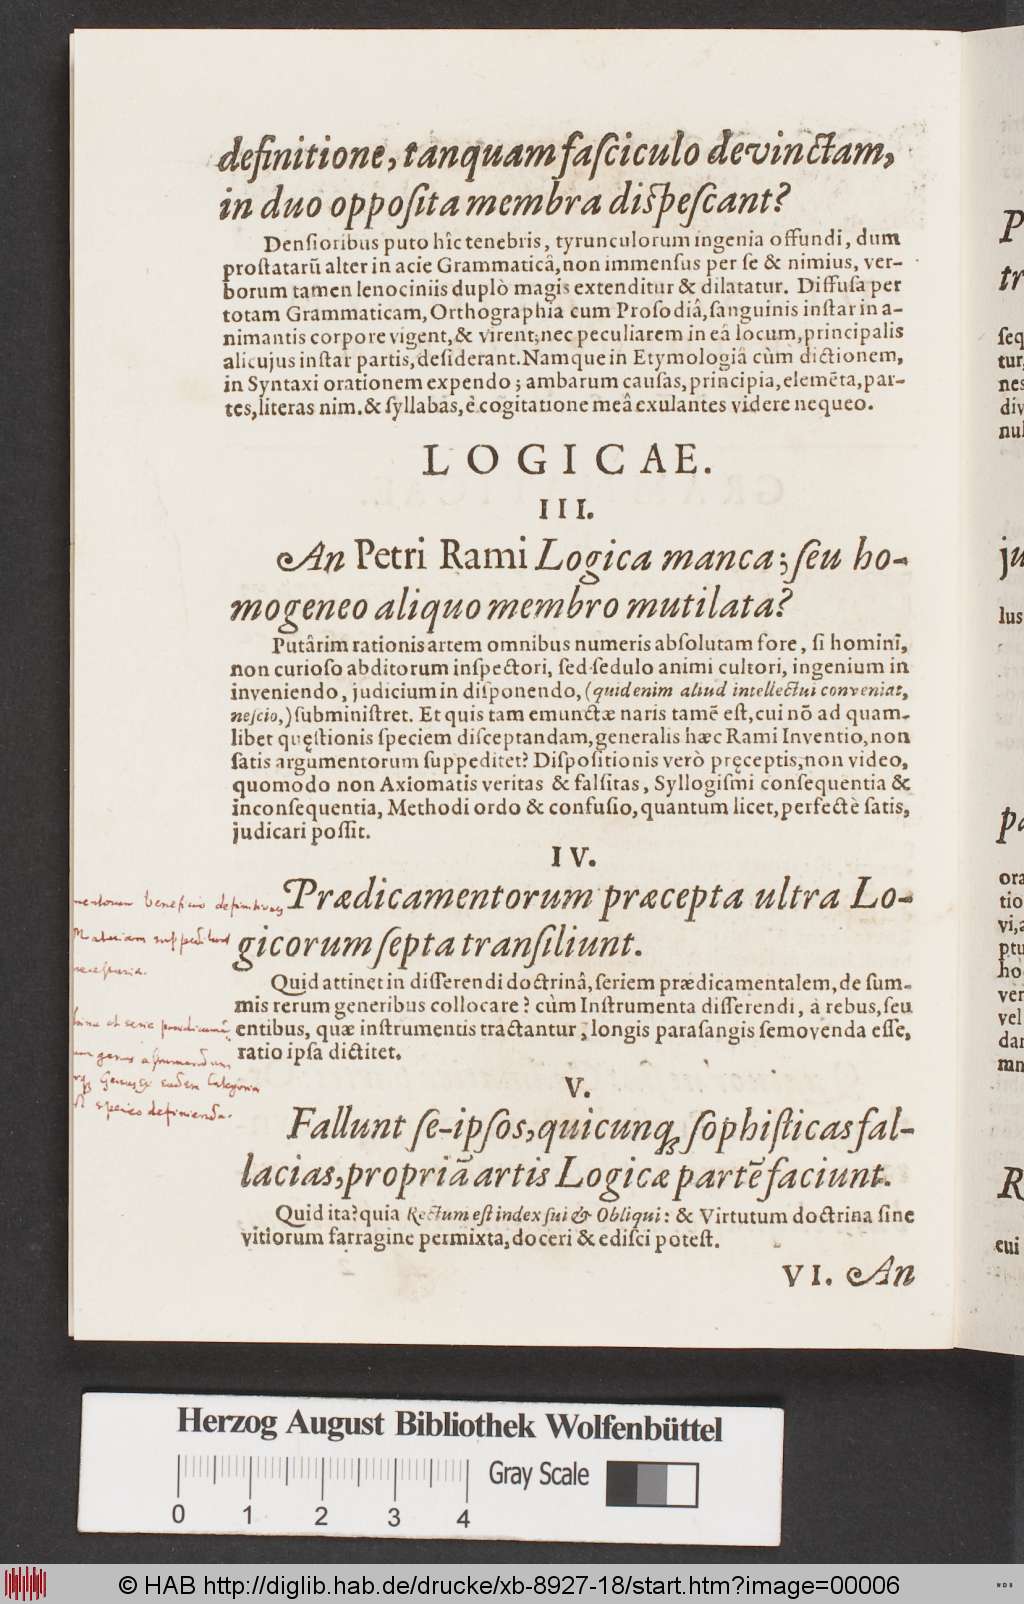 definitione, tanquam fasciculo devinctam,
in duo opposita membra dispescant?
Densioribus puto hîc tenebris, tyrunculorum ingenia offundi, dum
prostatarũ alter in acie Grammaticâ, non immensus per se & nimius, ver-
borum tamen lenociniis duplò magis extenditur & dilatatur. Diffusa per
totam Grammaticam, Orthographia cum Prosodiâ, sanguinis instar in a-
nimantis corpore vigent, & virent; nec peculiarem in eâ locum, principalis
alicujus instar partis, desiderant. Namque in Etymologiâ cùm dictionem,
in Syntaxi orationem expendo; ambarum causas, principia, elemẽta, par-
tes, literas nim. & syllabas, è cogitatione meâ exulantes videre nequeo.
LOGICAE.
III.
An Petri Rami Logica manca; seu ho-
mogeneo aliquo membro mutilata?
Putârim rationis artem omnibus numeris absolutam fore, si homini,
non curioso abditorum inspectori, sed sedulo animi cultori, ingenium in
inveniendo, judicium in disponendo, (quid enim aliud intellectui conveniat,
nescio,) subministret. Et quis tam emunctæ naris tamẽ est, cui nõ ad quam-
libet quęstionis speciem disceptandam, generalis hæc Rami Inventio, non
satis argumentorum suppeditet? Dispositionis verò pręceptis, non video,
quomodo non Axiomatis veritas & falsitas, Syllogismi consequentia &
inconsequentia, Methodi ordo & confusio, quantum licet, perfectè satis,
judicari possit.
IV.
Prædicamentorum præcepta ultra Lo-
gicorum septa transiliunt.
Quid attinet in disserendi doctrinâ, seriem prædicamentalem, de sum-
mis rerum generibus collocare? cùm Instrumenta disserendi, à rebus, seu
entibus, quæ instrumentis tractantur, longis parasangis semovenda esse,
ratio ipsa dictitet.
beneficio
V.
Fallunt se-ipsos, quicunq; sophisticas fal-
lacias, propriã artis Logicæ partẽ faciunt.
Quid ita? quia Rectum est index sui & Obliqui: & Virtutum doctrina sine
vitiorum farragine permixta, doceri & edisci potest.
VI. An
P
tr
seq
tur,
nes
div
nul
ju
lus
pa
ora
tio
vi, a
ptu
ho
ver
vel
dar
mn
R
cui
Herzog August Bibliothek Wolfenbüttel
Gray Scale
0 1 2 3 4
© HAB http://diglib.hab.de/drucke/xb-8927-18/start.htm?image=00006